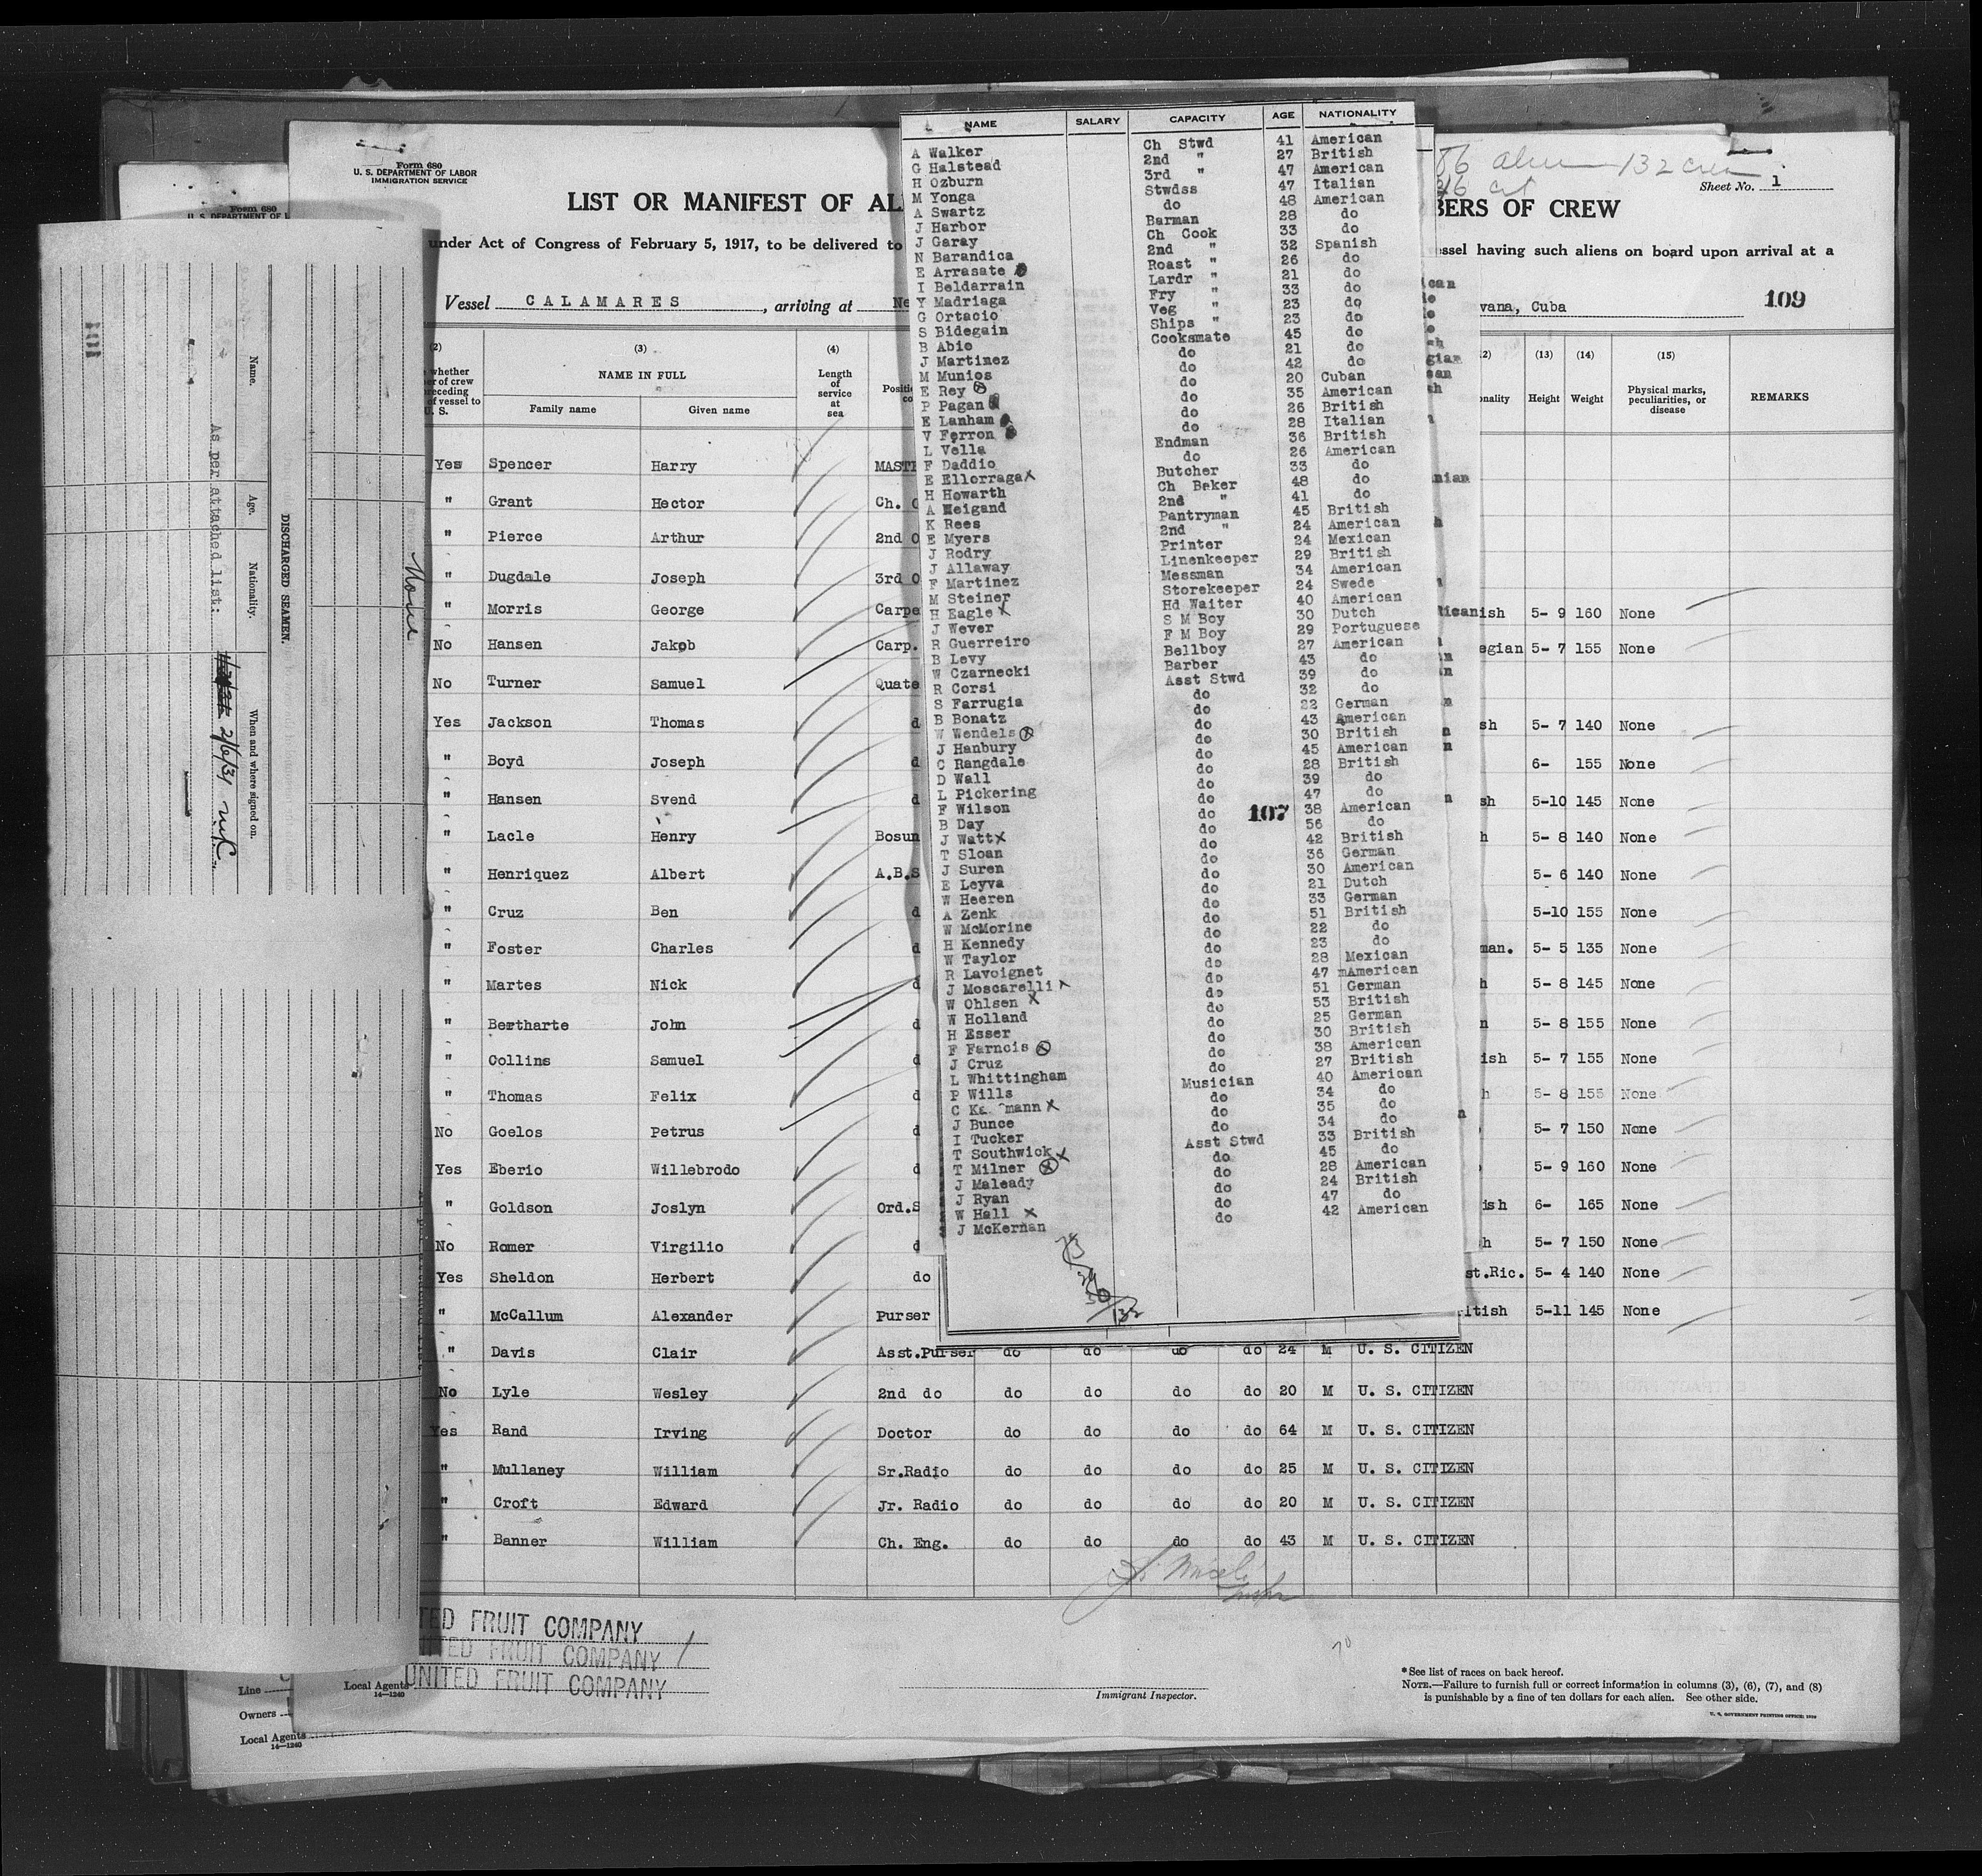 Form 680
U. S. DEPARTMENT OF LABOR
IMMIGRATION SERVICE
LIST OR MANIFEST OF AL
BERS OF CREW
Sheet No. 1
132 crew
under Act of Congress of February 5, 1917, to be delivered to
essel having such aliens on board upon arrival at a
Vessel CALAMARES, arriving at Ne
vana, Cuba
109
(2) (3) (4)
whether
er of crew
receding
of vessel to
U. S.
NAME IN FULL
Family name Given name
Length
of
service
at
sea
(13) (14) (15)
nality Height Weight Physical marks,
peculiarities, or
disease
REMARKS
Yes Spencer Harry MAST
" Grant Hector Ch. O
" Pierce Arthur 2nd O
" Dugdale Joseph 3rd O
" Morris George Carpe
No Hansen Jakob Carp.
No Turner Samuel Quate
Yes Jackson Thomas d
" Boyd Joseph d
" Hansen Svend d
" Lacle Henry Bosun
" Henriquez Albert A.B.S
" Cruz Ben d
" Foster Charles d
" Martes Nick d
" Bertharte John d
" Collins Samuel d
" Thomas Felix d
No Goelos Petrus d
Yes Eberio Willebrodo d
" Goldson Joslyn Ord.S
No Romer Virgilio d
Yes Sheldon Herbert do
" McCallum Alexander Purser
" Davis Clair Asst.Purser do do do do 24 M U. S. CITIZEN
No Lyle Wesley 2nd do do do do do 20 M U. S. CITIZEN
Yes Rand Irving Doctor do do do do 64 M U. S. CITIZEN
" Mullaney William Sr.Radio do do do do 25 M U. S. CITIZEN
" Croft Edward Jr. Radio do do do do 20 M U. S. CITIZEN
" Banner William Ch. Eng. do do do do 43 M U. S. CITIZEN
5- 9 160 None
egian 5- 7 155 None
sh 5- 7 140 None
6- 155 None
sh 5-10 145 None
h 5- 8 140 None
5- 6 140 None
5-10 155 None
man. 5- 5 135 None
h 5- 8 145 None
n 5- 8 155 None
ish 5- 7 155 None
h 5- 8 155 None
5- 7 150 None
5- 9 160 None
ish 6- 165 None
h 5- 7 150 None
st.Ric. 5- 4 140 None
ritish 5-11 145 None
NAME SALARY CAPACITY AGE NATIONALITY
A Walker Ch Stwd 41 American
G Halstead 2nd " 27 British
H Ozburn 3rd " 47 American
M Yonga Stwdss 47 Italian
A Swartz do 48 American
J Harbor Barman 28 do
J Garay Ch Cook 33 do
N Barandica 2nd " 32 Spanish
E Arrasate Roast " 26 do
I Beldarrain Lardr " 21 do
Y Madriaga Fry " 33 do
G Ortacio Veg " 23 do
S Bidegain Ships " 23 do
B Abio Cooksmate 45 do
J Martinez do 21 do
M Munios do 42 do
E Rey do 20 Cuban
P Pagan do 35 American
E Lanham do 26 British
V Ferron do 28 Italian
L Vella Endman 36 British
F Daddio do 26 American
E Ellorraga Butcher 33 do
H Howarth Ch Baker 48 do
A Weigand 2nd " 41 do
K Rees Pantryman 45 British
E Myers 2nd " 24 American
J Rodry Printer 24 Mexican
J Allaway Linenkeeper 29 British
F Martinez Messman 34 American
M Steiner Storekeeper 24 Swede
H Eagle Hd Waiter 40 American
J Wever S M Boy 30 Dutch
R Guerreiro F M Boy 29 Portuguese
B Levy Bellboy 27 American
W Czarnecki Barber 43 do
R Corsi Asst Stwd 39 do
S Farrugia do 32 do
B Bonatz do 22 German
W Wendels do 43 American
J Hanbury do 30 British
C Rangdale do 45 American
D Wall do 28 British
L Pickering do 39 do
F Wilson do 47 do
B Day do 38 American
J Watt do 56 do
T Sloan do 42 British
J Suren do 36 German
E Leyva do 30 American
W Heeren do 21 Dutch
A Zenk do 33 German
W McMorine do 51 British
H Kennedy do 22 do
W Taylor do 23 do
R Lavoignet do 28 Mexican
J Moscarelli do 47 mAmerican
W Ohlsen do 51 German
W Holland do 53 British
H Esser do 25 German
F Farncis do 30 British
J Cruz do 38 American
L Whittingham do 27 British
P Wills Musician 40 American
C Ka mann do 34 do
J Bunce do 35 do
I Tucker do 34 do
T Southwick Asst Stwd 33 British
T Milner do 45 do
J Maleady do 28 American
J Ryan do 24 British
W Hall do 47 do
J McKernan do 42 American
107
132
101
Name. Age. Nationality. When and where signed on.
As per attached list: 2/6/31 NYC
DISCHARGED SEAMEN.
None
UNITED FRUIT COMPANY
UNITED FRUIT COMPANY
UNITED FRUIT COMPANY
Local Agents
14—1240
Immigrant Inspector.
*See list of races on back hereof.
NOTE.—Failure to furnish full or correct information in columns (3), (6), (7), and (8)
is punishable by a fine of ten dollars for each alien. See other side.
U. S. GOVERNMENT PRINTING OFFICE
Line
Owners
Local Agents
14—1240